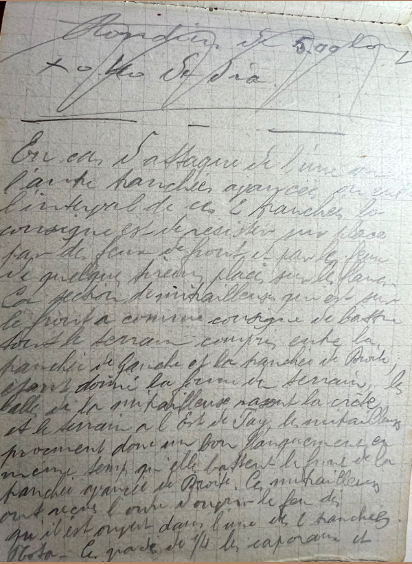 Rondins de 5.00 long
x 0.40 de dia
En cas d'attaque de l'une ou
l'autre tranchées avancée ou sur
l'interval de ces 2 tranches la
consigne est de resister sur place
par des feux de front et par les feux
de quelques tireurs placés sur le flanc
La section de mitrailleuses qui est sur
le front a comme consigne de battre
tout le terrain compris entre la
tranchée de Gauche et la tranchée de Droite,
étant donné la forme du terrain, les
balles de la mitrailleuse rasant la crête
et le terrain a l'Est de les mitrailleuses
procurent donc un bon flanquement en
meme temps qu'elle battent le front de la
tranchée avancée de Droite. Ces mitrailleuses
ont reçus l'ordre d'ouvrir le feu dès
qu'il est ouvert dans l'une des 2 tranchées.
Nota - Ce de 1/4 les caporaux et